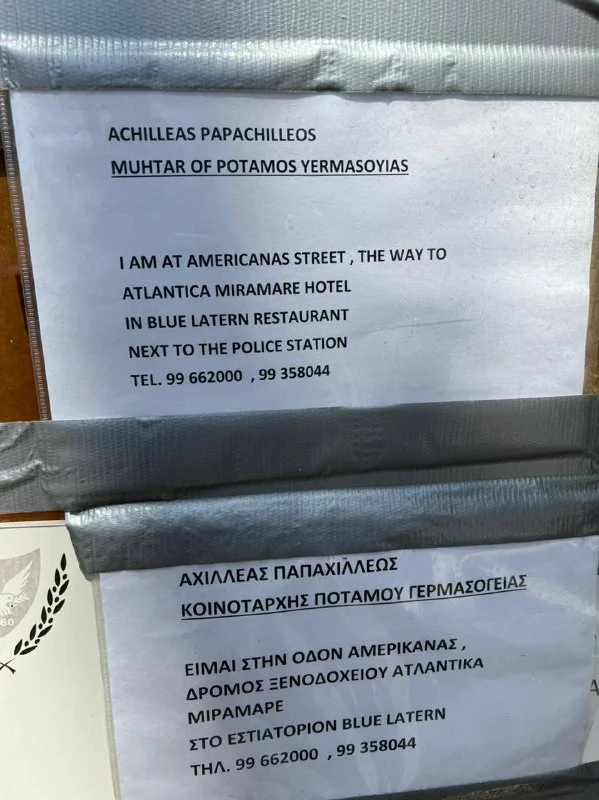 ACHILLEAS PAPACHILLEOS
MUHTAR OF POTAMOS YERMASOYIAS
I AM AT AMERICANAS STREET , THE WAY TO
ATLANTICA MIRAMARE HOTEL
IN BLUE LATERN RESTAURANT
NEXT TO THE POLICE STATION
TEL. 99 662000 , 99 358044
ΑΧΙΛΛΕΑΣ ΠΑΠΑΧΙΛΛΕΩΣ
ΚΟΙΝΟΤΑΡΧΗΣ ΠΟΤΑΜΟΥ ΓΕΡΜΑΣΟΓΕΙΑΣ
ΕΙΜΑΙ ΣΤΗΝ ΟΔΟΝ ΑΜΕΡΙΚΑΝΑΣ ,
ΔΡΟΜΟΣ ΞΕΝΟΔΟΧΕΙΟΥ ΑΤΛΑΝΤΙΚΑ
ΜΙΡΑΜΑΡΕ
ΣΤΟ ΕΣΤΙΑΤΟΡΙΟΝ BLUE LATERN
ΤΗΛ. 99 662000 , 99 358044
60